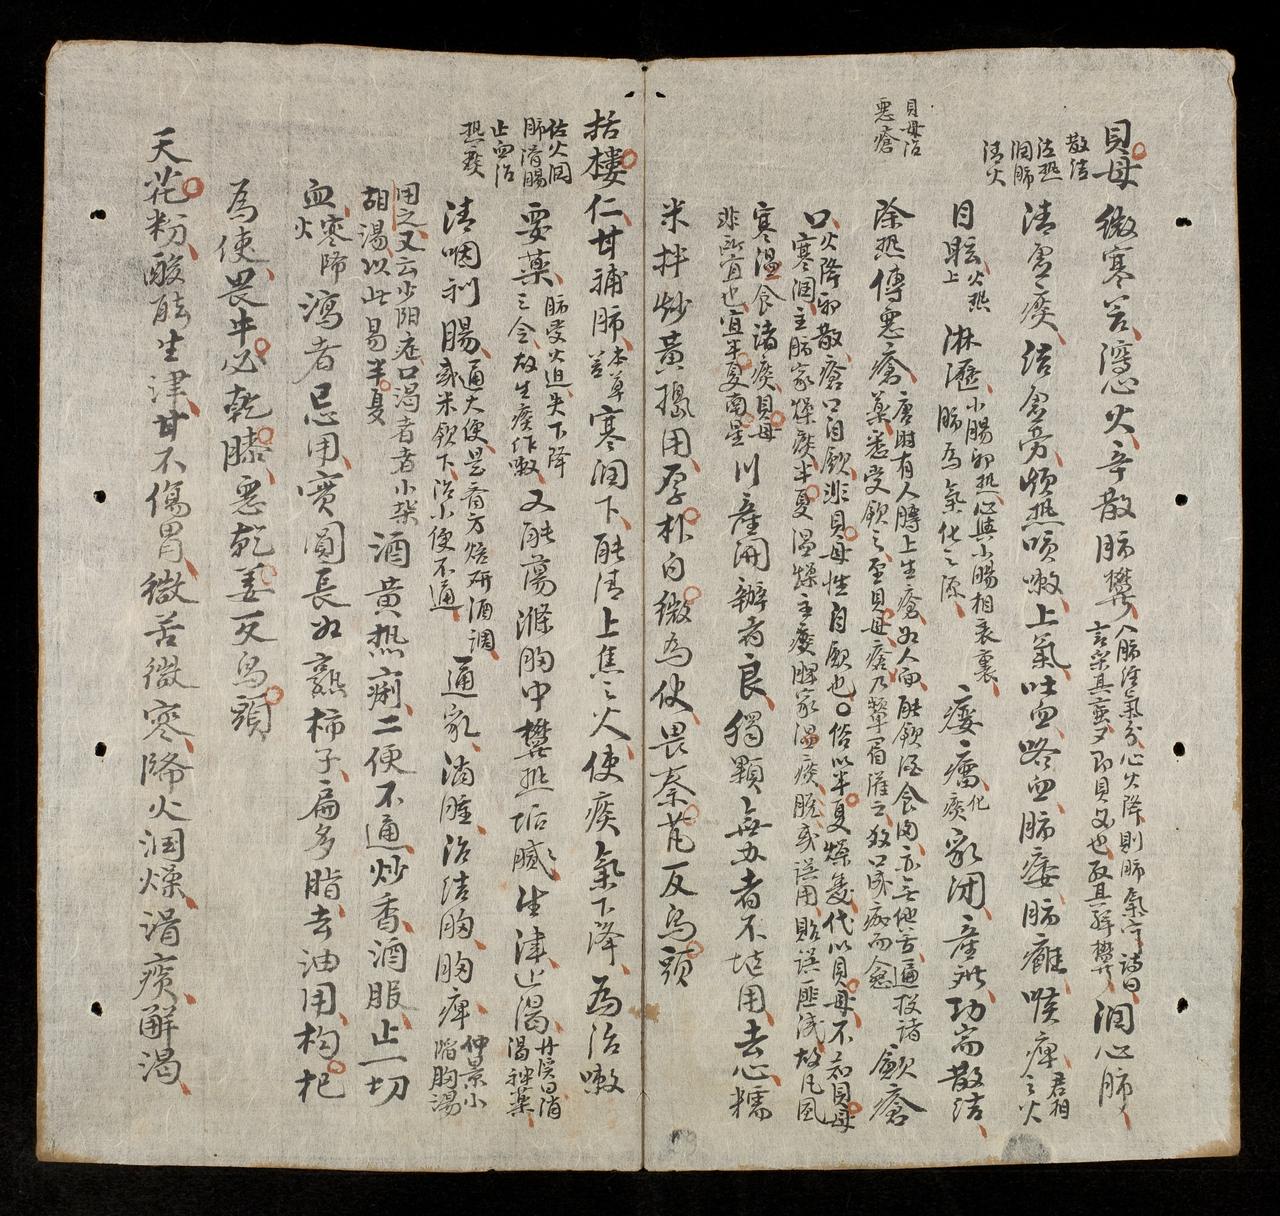 貝母
散結
泄熱
潤肺
清火
微寒苦瀉心火辛散肺欝入肺經氣分心火降則肺氣寧詩曰言采其蝱即貝母也取其解欝潤心肺
清虛痰結虛勞煩熱咳嗽上氣吐血咯血肺痿肺癰喉痺君相之火
目眩火熱上淋瀝小腸卸熱心與小腸相表裏肺為氣化之源癭瘤化痰乳閉產難功崙散結
貝母治
惡瘡
除熱傅惡瘡唐時有人膊上生瘡如人面能飲酒食肉亦無他苦遍投諸藥悉受飲之至貝母瘡乃顰眉灌之數口成痂而愈歛瘡
口火降邪散瘡口自歛非貝母性自歛也俗以半夏燥毒代以貝母不知貝母
寒潤主肺家燥痰半夏溫燥主痰脾家溫痰脫或誤用貽誤匪淺故凡風
寒溫食諸痰貝母非所宜也宜半夏南星川產開瓣者良獨顆無办者不堪用去心糯
米拌炒黃搗用厚朴白微為使畏秦艽反烏頭
括樓
佐火潤
肺滑腸
止血治
熱痰
仁甘補肺本草苦寒潤下能清上焦之火使痰氣下降為治嗽
要藥肺受火迫失下降之令故生痰作嗽又能蕩滌胸中欝熱垢膩生津止渴丹溪曰消渴神藥
清咽利腸通大便是齋方焙研酒調或米飲下治小便不通通乳消腫治結胸胸痺仲景小陷胸湯
用之又云少阳症口渴者者小柴胡湯以此易半夏酒黃熱痢二便不通炒香酒服止一切
血寒降火瀉者忌用實圓長如熟柿子扁多脂去油用构杞
為使畏牛必乾膝惡乾姜反烏頭
天花粉酸能生津甘不傷胃微苦微寒降火潤燥滑痰解渴